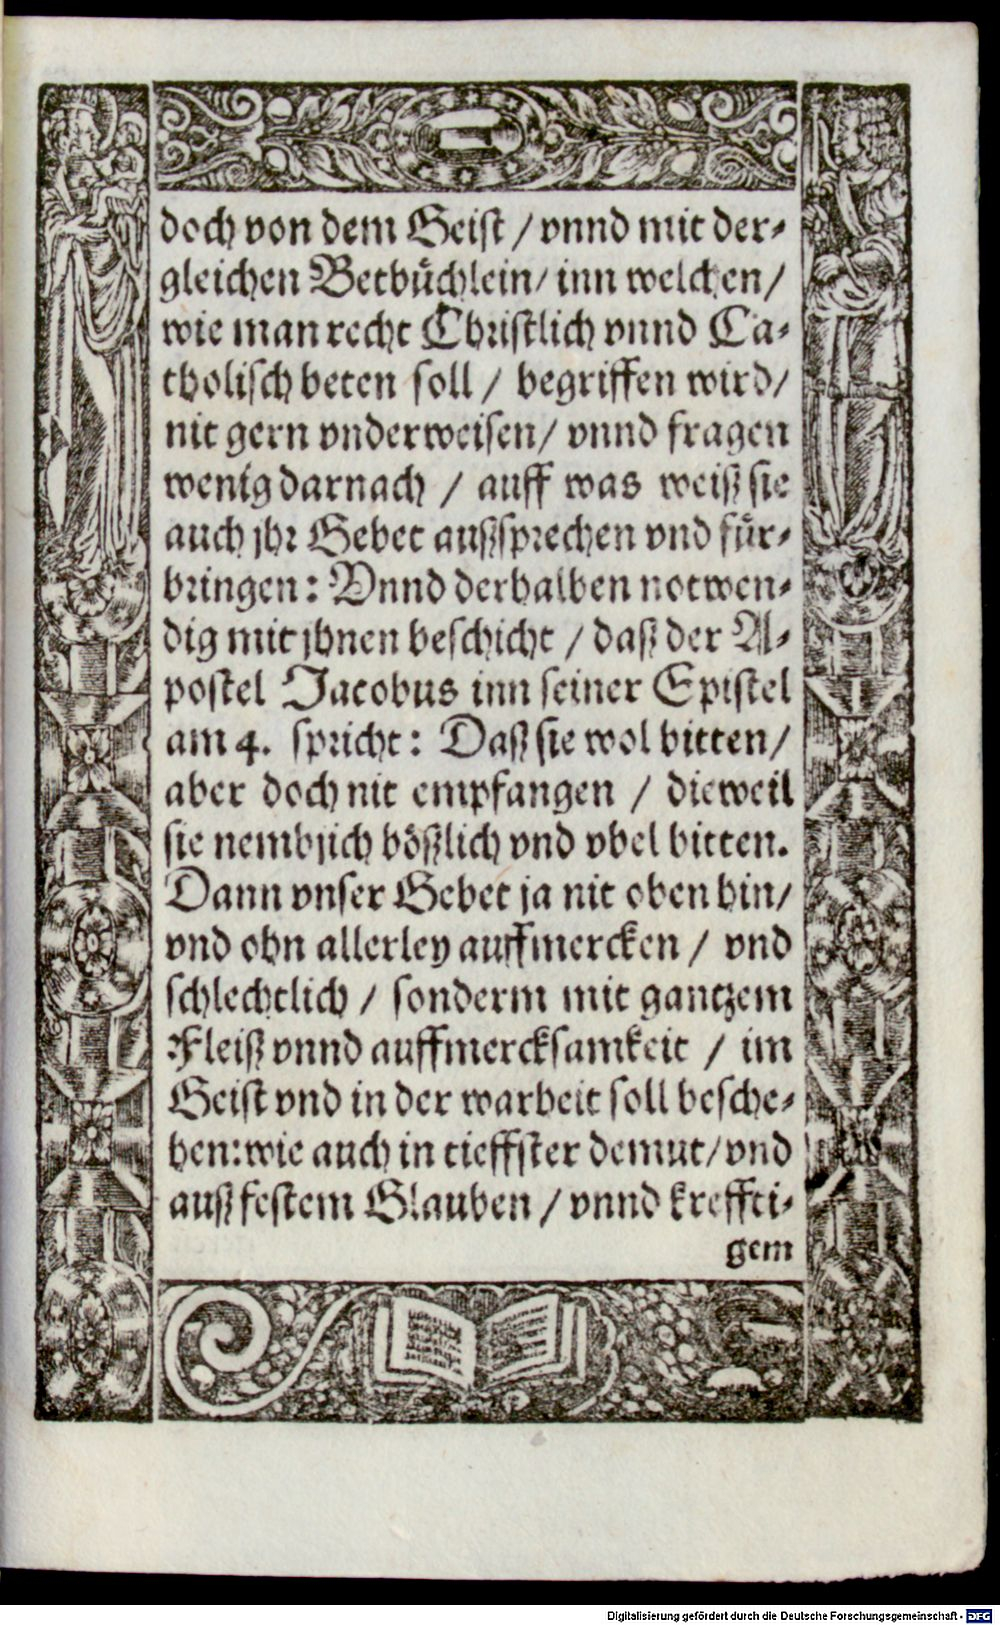 doch von dem Geist / vnnd mit der⸗
gleichen Betbüchlein / inn welchen /
wie man recht Christlich vnnd Ca⸗
tholisch beten soll / begriffen wird /
nit gern vnderweisen / vnnd fragen
wenig darnach / auff was weiß sie
auch jhr Gebet außsprechen vnd für⸗
bringen: Vnnd derhalben notwen⸗
dig mit jhnen beschicht / daß der A⸗
postel Jacobus inn seiner Epistel
am 4. spricht: Daß sie wol bitten /
aber doch nit empfangen / dieweil
sie nemblich bößlich vnd vbel bitten.
Dann vnser Gebet ja nit oben hin /
vnd ohn allerley auffmercken / vnd
schlechtlich / sonderm mit gantzem
Fleiß vnnd auffmercksamkeit / im
Geist vnd in der warheit soll besche⸗
hen: wie auch in tieffster demut / vnd
auß festem Glauben / vnnd kreffti⸗
gem
Digitalisierung gefördert durch die Deutsche Forschungsgemeinschaft - DFG